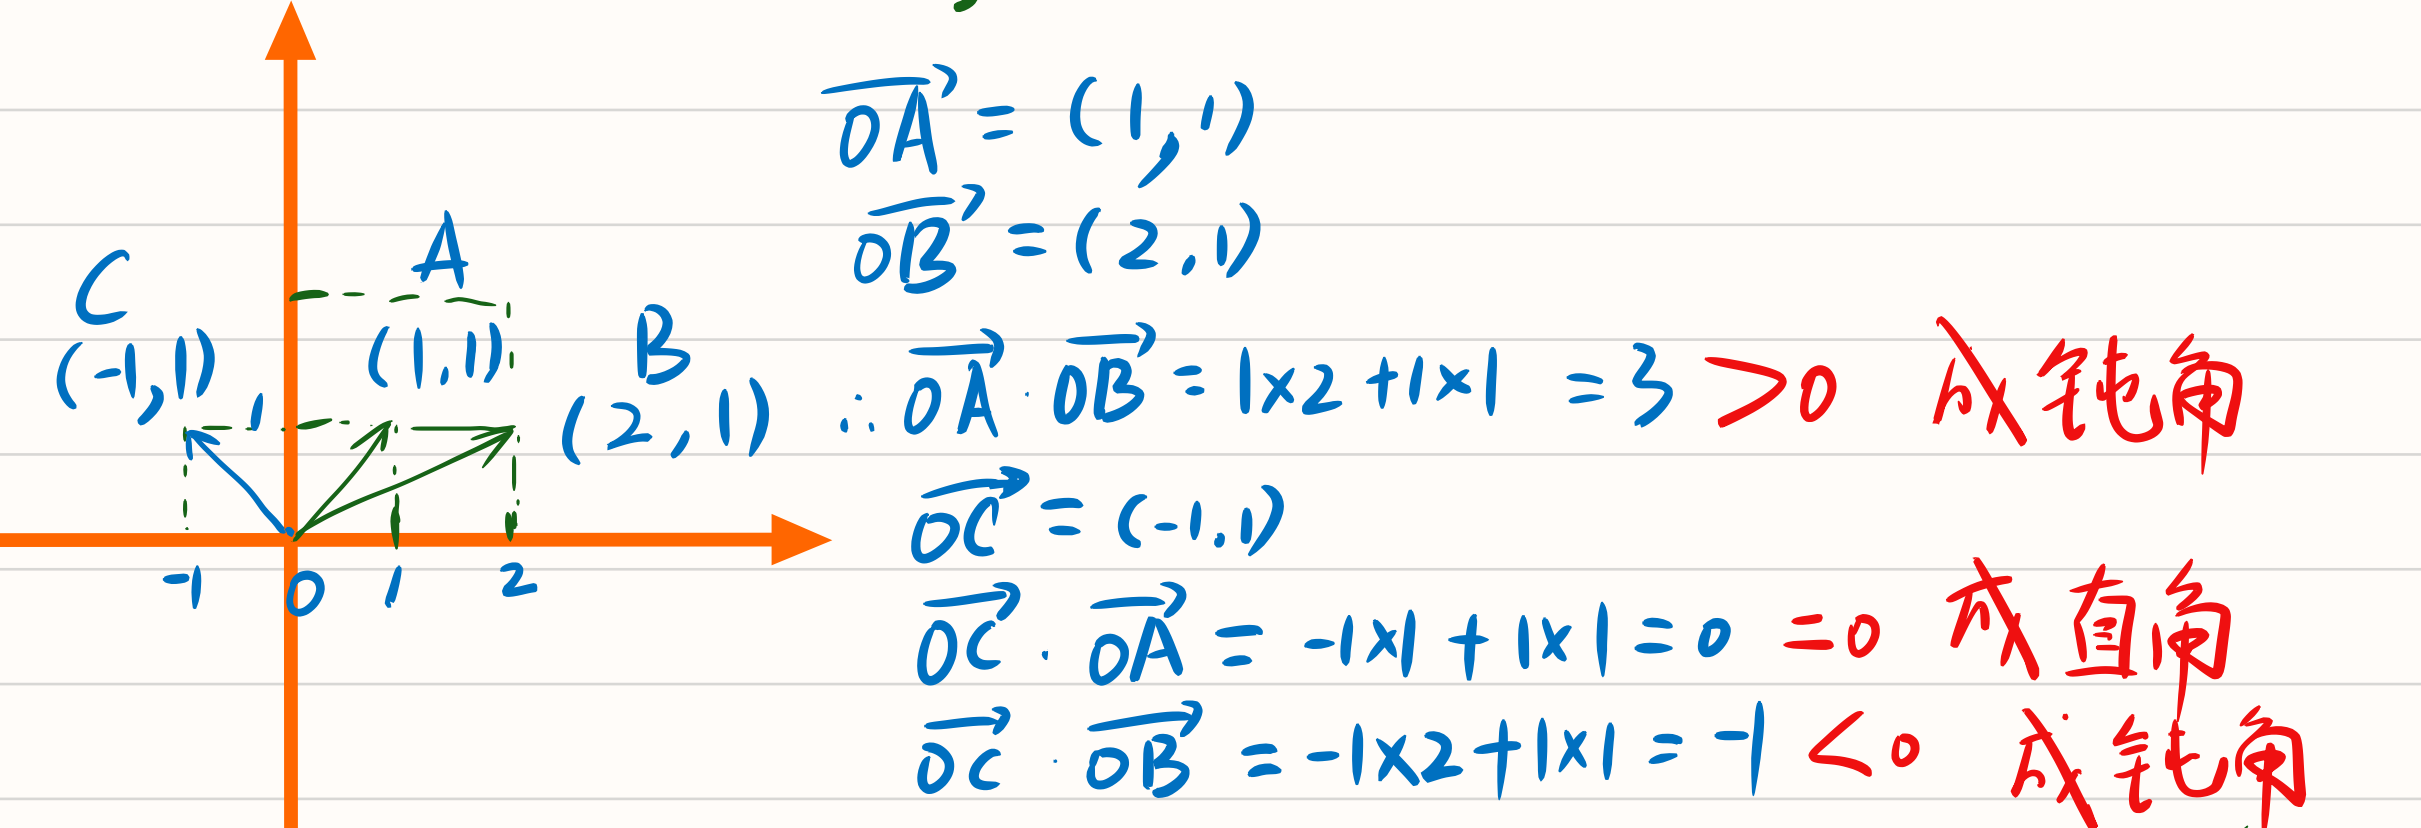 C
(-1,1)
A
(1,1)
B
(2,1)
1
-1 0 1 2
OA⃗ = (1,1)
OB⃗ = (2,1)
∴ OA⃗ · OB⃗ = 1×2+1×1 = 3 >0 成钝角
OC⃗ = (-1,1)
OC⃗ · OA⃗ = -1×1+1×1=0 =0 成直角
OC⃗ · OB⃗ = -1×2+1×1 = -1 <0 成钝角